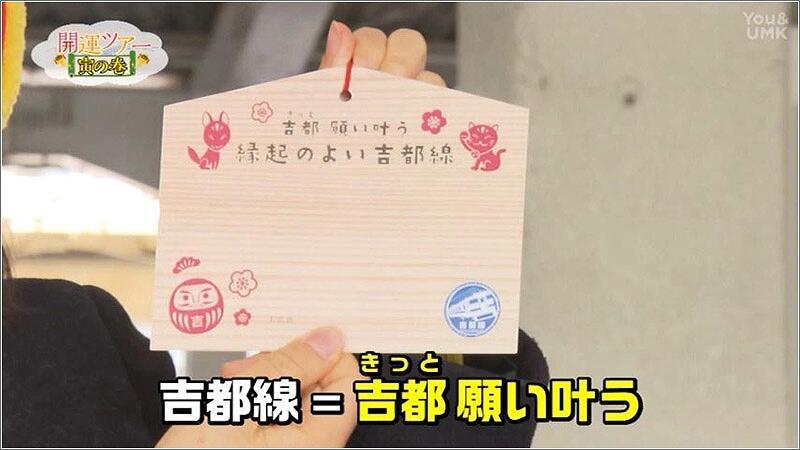 開運ツアー
寅の巻
You&
UMK
きっと
吉都 願い叶う
縁起のよい吉都線
吉
吉都線
きっと
吉都線=吉都 願い叶う